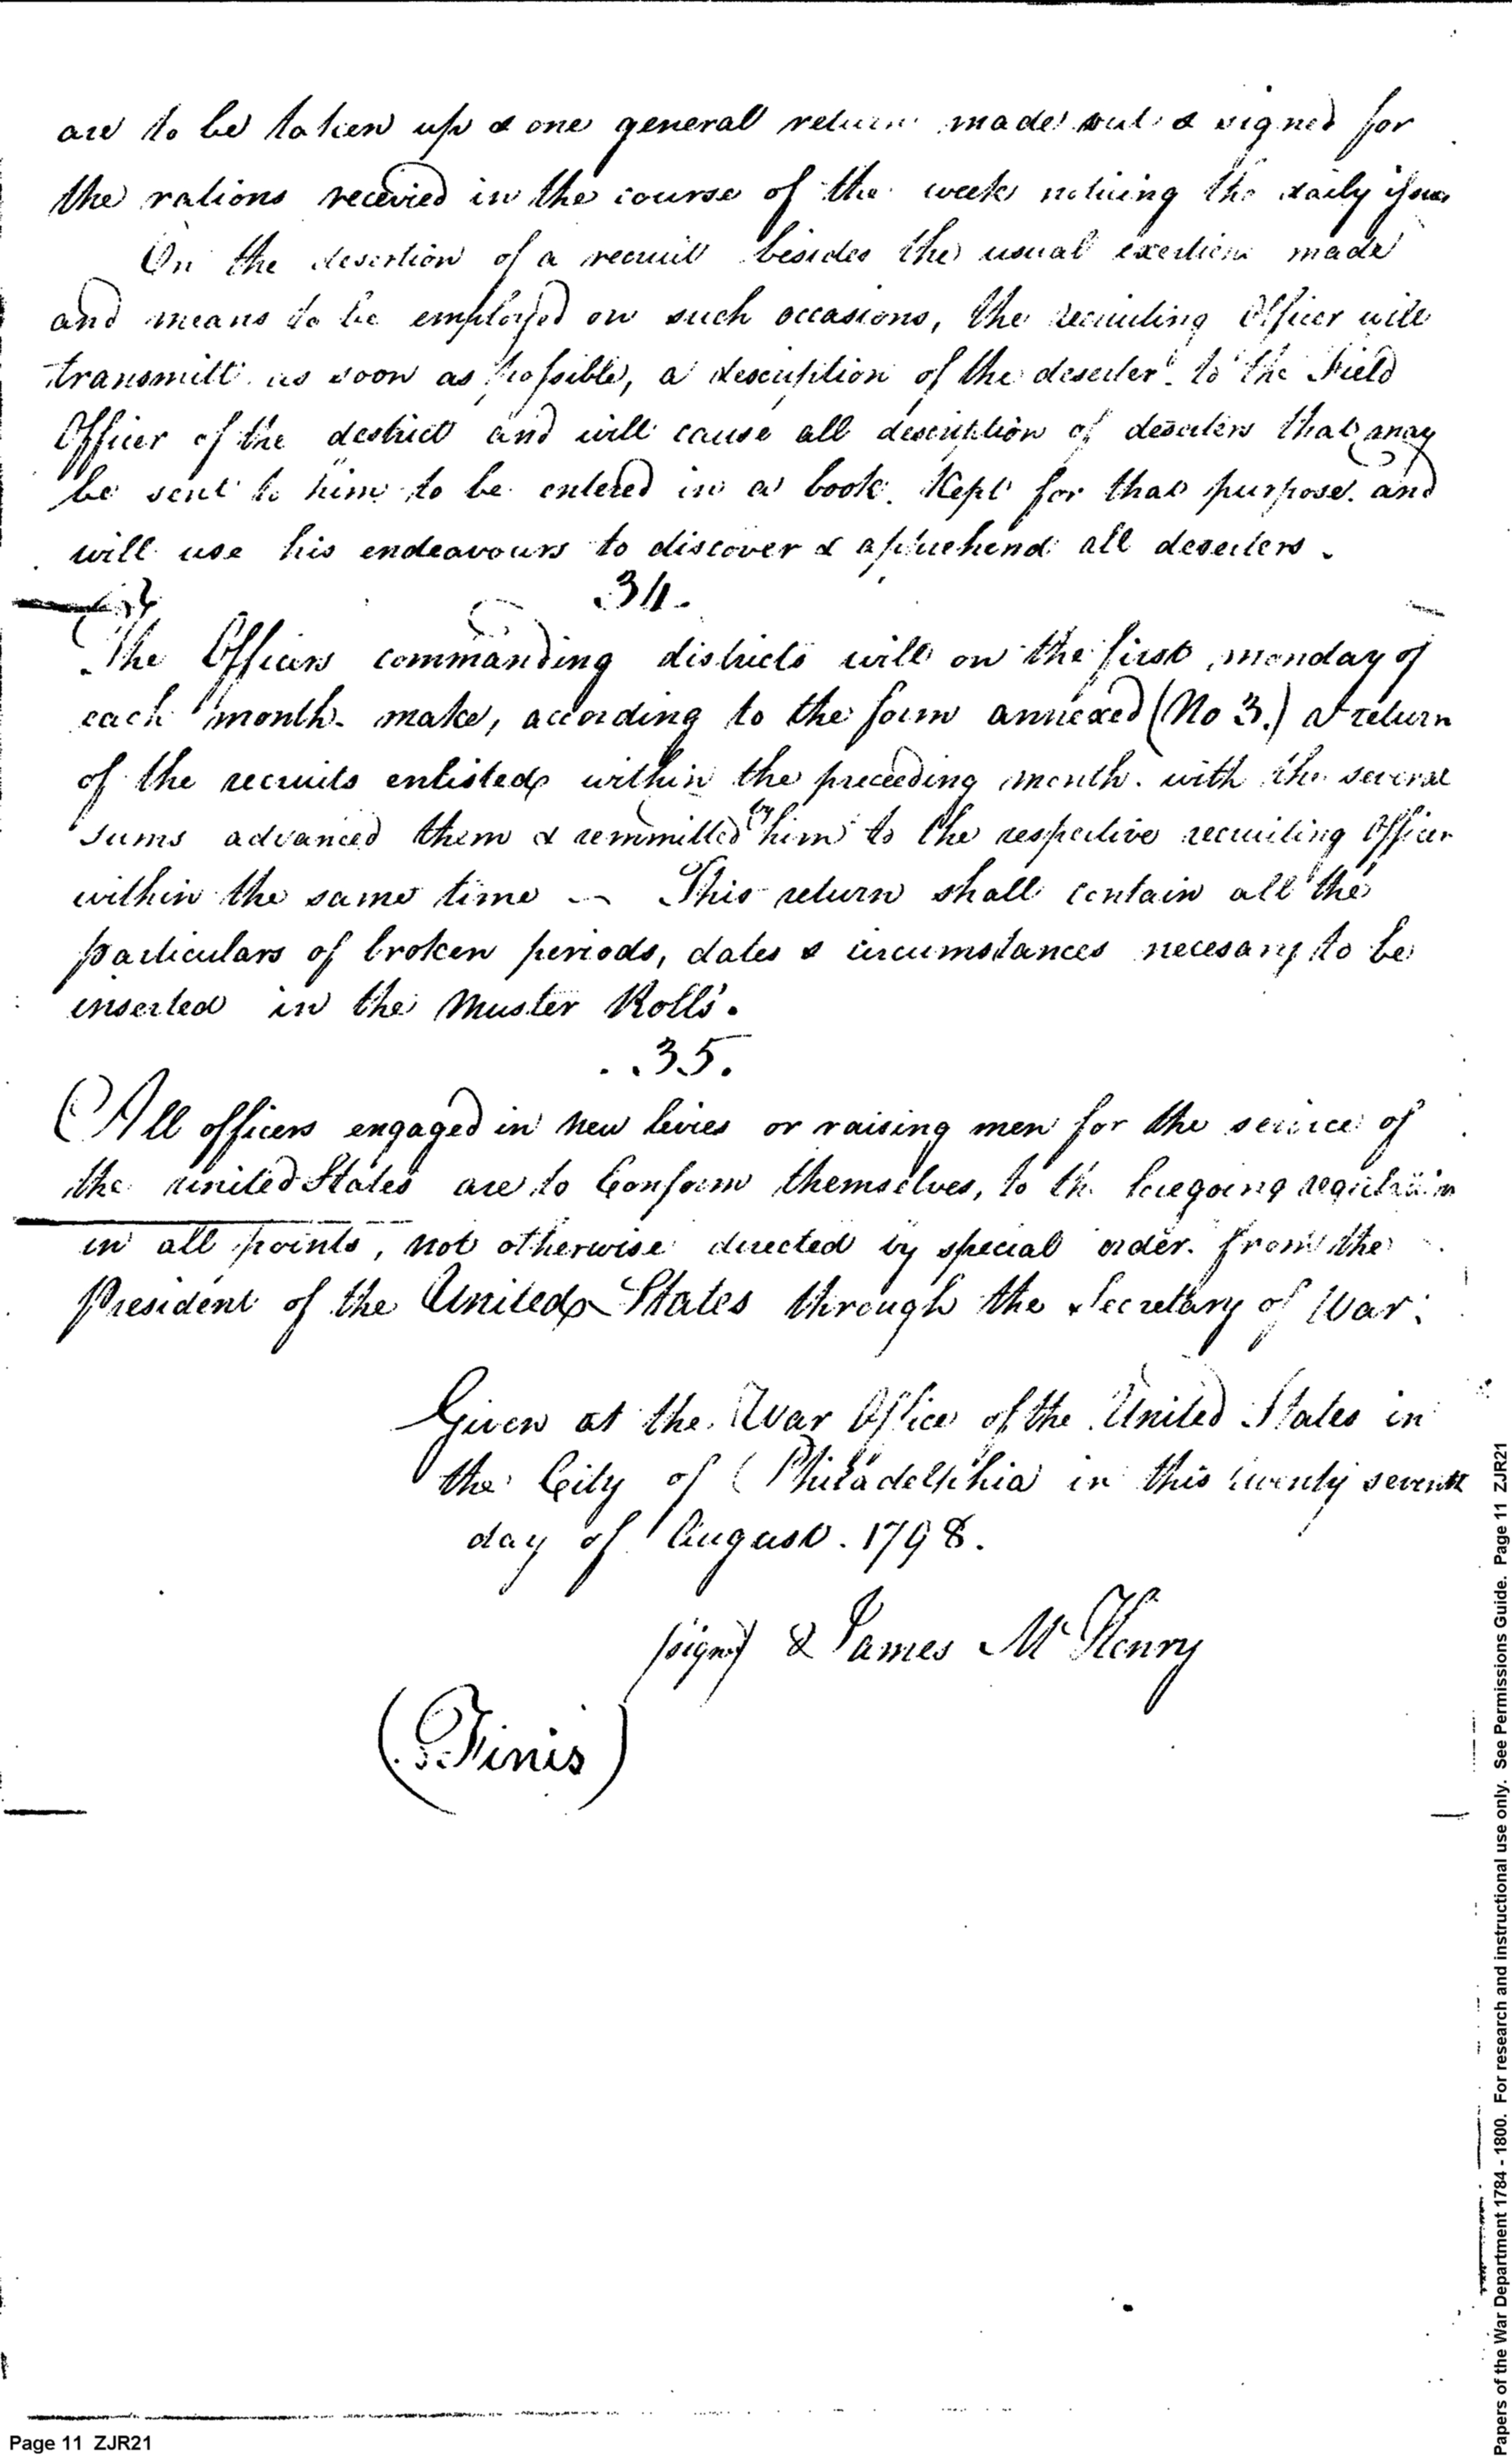 are to be taken up & one general return made out & signed for
the rations received in the course of the week noticing the daily issues
On the desertion of a recruit besides the usual exertions made
and means to be employed on such occasions, the recruiting Officer will
transmitt as soon as possible, a description of the deserter to the Field
Officer of the destrict and will cause all description of deserters that may
be sent to him to be entered in a book. Kept for that purpose. and
will use his endeavours to discover & apprehend all deserters.
34.
The Officers commanding districts will on the first monday of
each month make, according to the form annexed (No 3.) a return
of the recruits enlisted within the preceeding month. with the several
sums advanced them & remmitted by him to the respective recruiting Officer
within the same time — This return shall contain all the
particulars of broken periods, dates & circumstances necesary to be
inserted in the Muster Rolls.
35.
All officers engaged in new levies or raising men for the service of
the united States are to Conform themselves, to the foregoing regulation
in all points, not otherwise directed by special order. from the
President of the United States through the Secretary of War.
Given at the War Office of the United States in
the City of Philadelphia in this twenty seventh
day of August. 1798.
signed & James McHenry
(Finis)
Page 11 ZJR21
Papers of the War Department 1784 - 1800. For research and instructional use only. See Permissions Guide. Page 11 ZJR21